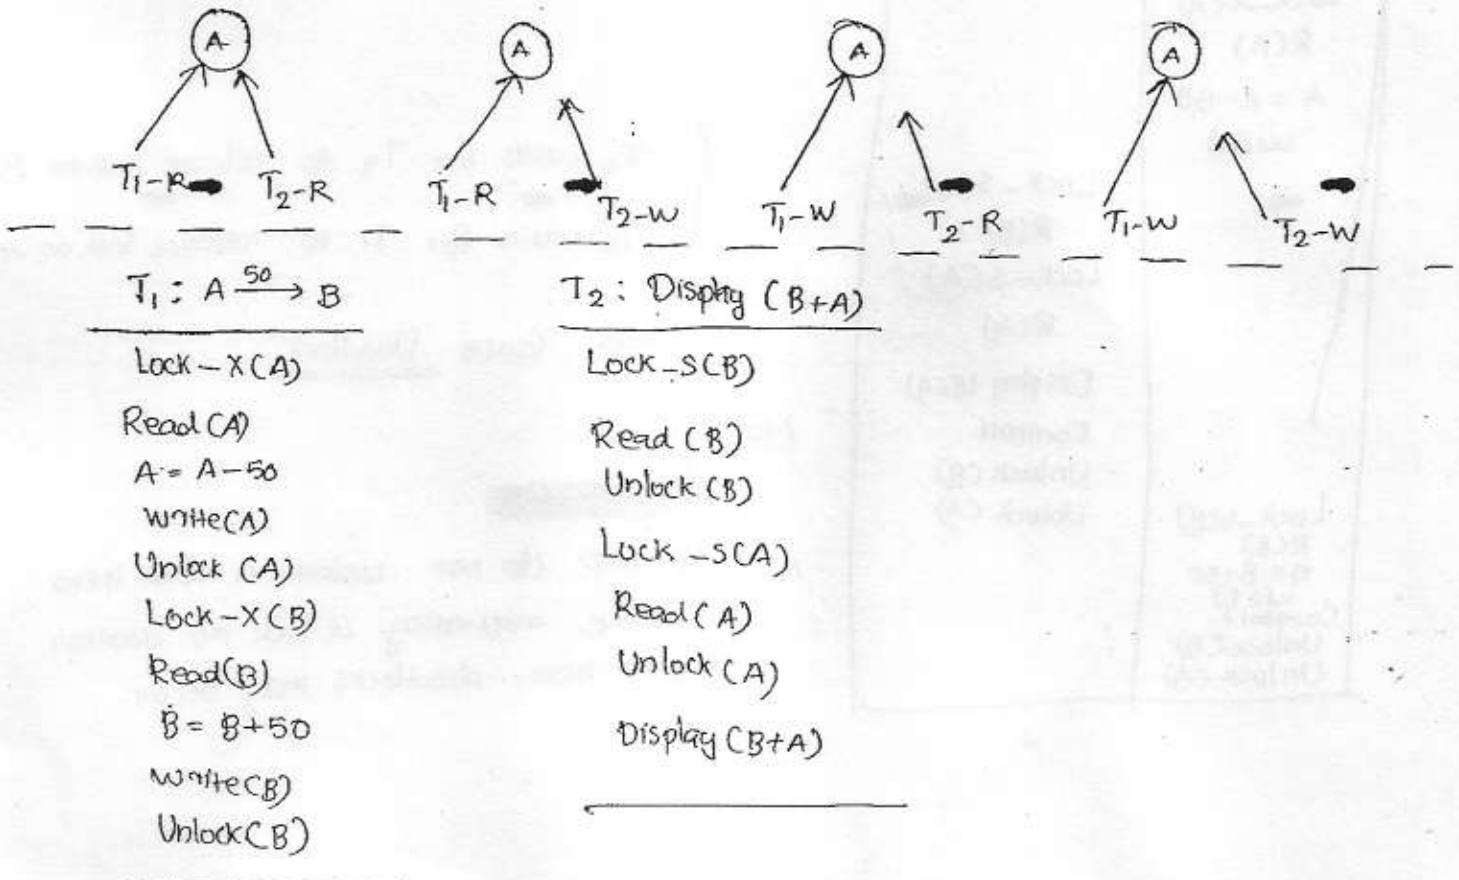 A A A A
T₁-R T₂-R T₁-R T₂-W T₁-W T₂-R T₁-W T₂-W
T₁ : A 50→ B
Lock-X(A)
Read(A)
A = A-50
write(A)
Unlock (A)
Lock-X(B)
Read(B)
B = B+50
write(B)
Unlock(B)
T₂ : Display (B+A)
Lock-S(B)
Read (B)
Unlock (B)
Lock-S(A)
Read(A)
Unlock (A)
Display (B+A)